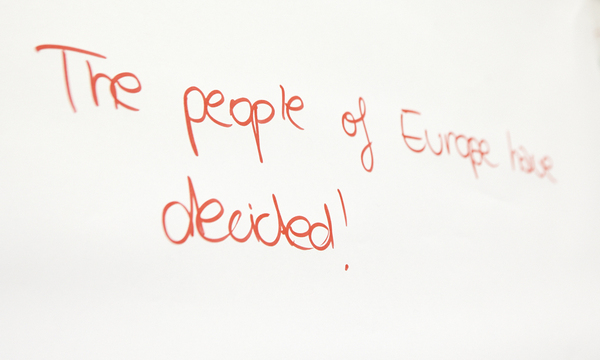 The people of Europe have
decided!